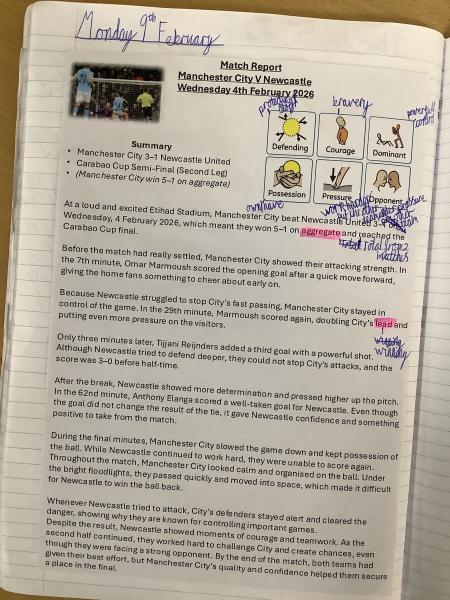 Monday 9th February
Match Report
Manchester City V Newcastle
Wednesday 4th February 2026
bravery
powerful
control
Defending
Courage
Dominant
Possession
Pressure
Opponent
own/have
Summary
• Manchester City 3–1 Newcastle United
• Carabao Cup Semi-Final (Second Leg)
• (Manchester City win 5–1 on aggregate)
At a loud and excited Etihad Stadium, Manchester City beat Newcastle United 3–1 on
Wednesday, 4 February 2026, which meant they won 5–1 on aggregate and reached the
Carabao Cup final.
Total from 2
matches
Before the match had really settled, Manchester City showed their attacking strength. In
the 7th minute, Omar Marmoush scored the opening goal after a quick move forward,
giving the home fans something to cheer about early on.
Because Newcastle struggled to stop City's fast passing, Manchester City stayed in
control of the game. In the 29th minute, Marmoush scored again, doubling City's lead and
putting even more pressure on the visitors.
winning
Only three minutes later, Tijjani Reijnders added a third goal with a powerful shot.
Although Newcastle tried to defend deeper, they could not stop City's attacks, and the
score was 3–0 before half-time.
After the break, Newcastle showed more determination and pressed higher up the pitch.
In the 62nd minute, Anthony Elanga scored a well-taken goal for Newcastle. Even though
the goal did not change the result of the tie, it gave Newcastle confidence and something
positive to take from the match.
During the final minutes, Manchester City slowed the game down and kept possession of
the ball. While Newcastle continued to work hard, they were unable to score again.
Throughout the match, Manchester City looked calm and organised on the ball. Under
the bright floodlights, they passed quickly and moved into space, which made it difficult
for Newcastle to win the ball back.
Whenever Newcastle tried to attack, City's defenders stayed alert and cleared the
danger, showing why they are known for controlling important games.
Despite the result, Newcastle showed moments of courage and teamwork. As the
second half continued, they worked hard to challenge City and create chances, even
though they were facing a strong opponent. By the end of the match, both teams had
given their best effort, but Manchester City's quality and confidence helped them secure
a place in the final.